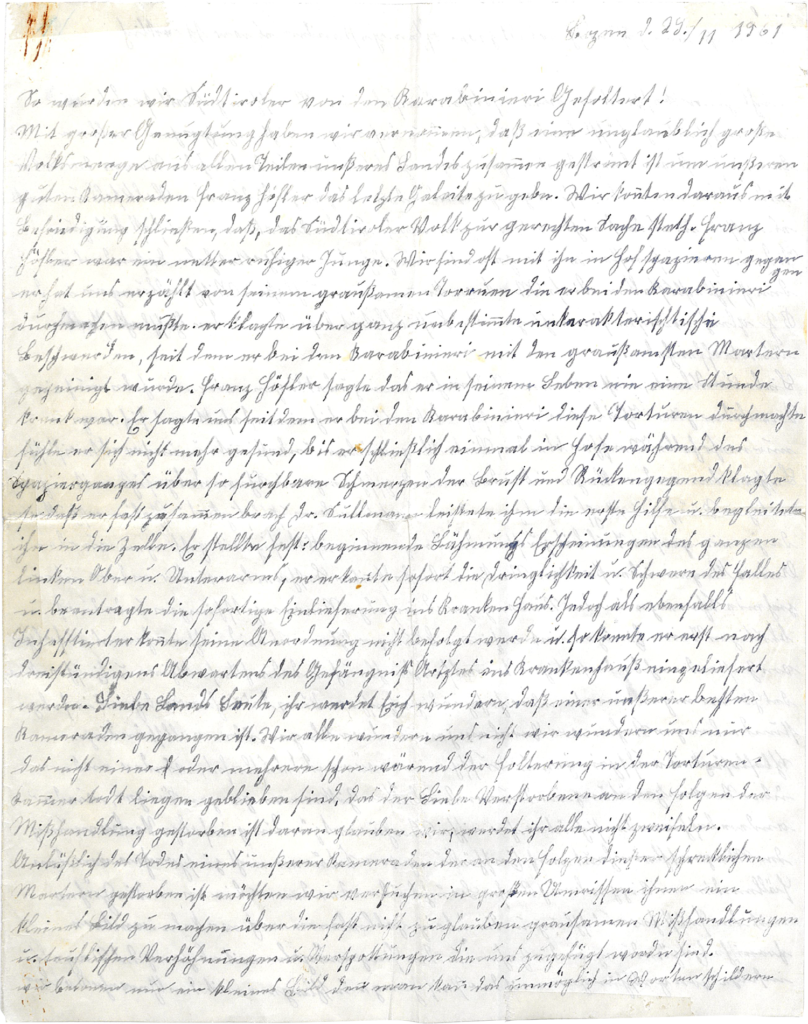 Bozen d. 29./11 1961
So wurden wir Südtiroler von den Karabinieri Gefoltert!
Mit großer Genugtung haben wir vernommen, daß eine unglaublich große
Volksmenge aus allen Teilen unßeres Landes zusammen geströmt ist um unßeren
guten Kameraden Franz Höfler das letzte Geleite zu geben. Wir konten daraus mit
Befriedigung schließen, daß, das Südtiroler Volk zur gerechten Sache steth. Franz
Höfler war ein netter ruhiger Junge. Wir sind oft mit ihn in Hof spazieren gegen
gen
er hat uns erzählt von seinem graußamen Torruen die er bei den Karabinieri
durchmachen mußte. er klagte über ganz unbestimmte unkarakterischtische
Beschwerden, seit dem er bei den Karabinieri mit den graußamsten Martern
gepeinigt wurde. Franz Höfler sagte das er in seinem Leben nie eine Stunde
krank war. Er sagte uns seit dem er bei den Karabinieri diese Torturen durchmachte
fühle er sich nicht mehr gesund, bis er schließlich einmal in Hofe während des
Spazierganges über so furchtbare Schmerzen der Brust und Rückengegend klagte
so daß er fast zusammen brach Dr. Sullmann leistete ihm die erste Hilfe u. begleitete
ihn in die Zelle. Er stellte fest: beginnende Lähmungs Erscheinungen des ganzen
linken Ober u. Unterarmes, er erkante sofort die Dringlichkeit u. Schwere des Falles
u. beantragte die sofortige Einlieferung ins Kranken Haus. Jedoch als ebenfalls
Inhafftierter konte seine Anordnung nicht befolgt werde u. so konnte er erst nach
dreistündigens Abwartens des Gefängniß Arztes ins Krankenhauß eingeliefert
werden. Liebe Lands Leute, ihr werdet Euch wundern daß einer unßerer besten
Kameraden gegangen ist. Wir alle wundern uns nicht wir wundern uns nur
das nicht einer oder mehrere schon wärend der Folterung in der Torturen-
kammer todt liegen geblieben sind, das der Liebe Verstorbene an den Folgen der
Mißhandlung gestorben ist daran glauben wir, werdet ihr alle nicht zweifeln.
Anläßlich des Todes eines unßerer Kameraden der an den Folgen dießer schreklichen
Martern gestorben ist möchten wir versuchen in großen Umrissen ihnen ein
kleines Bild zu machen über die fast nicht zu glauben grausamen Mißhandlungen
u. teuflischen Verhöhnungen u. Verspottungen die uns zugefügt worden sind.
wir betonen nur ein kleines Bild den man kan das unmöglich in Worten schildern